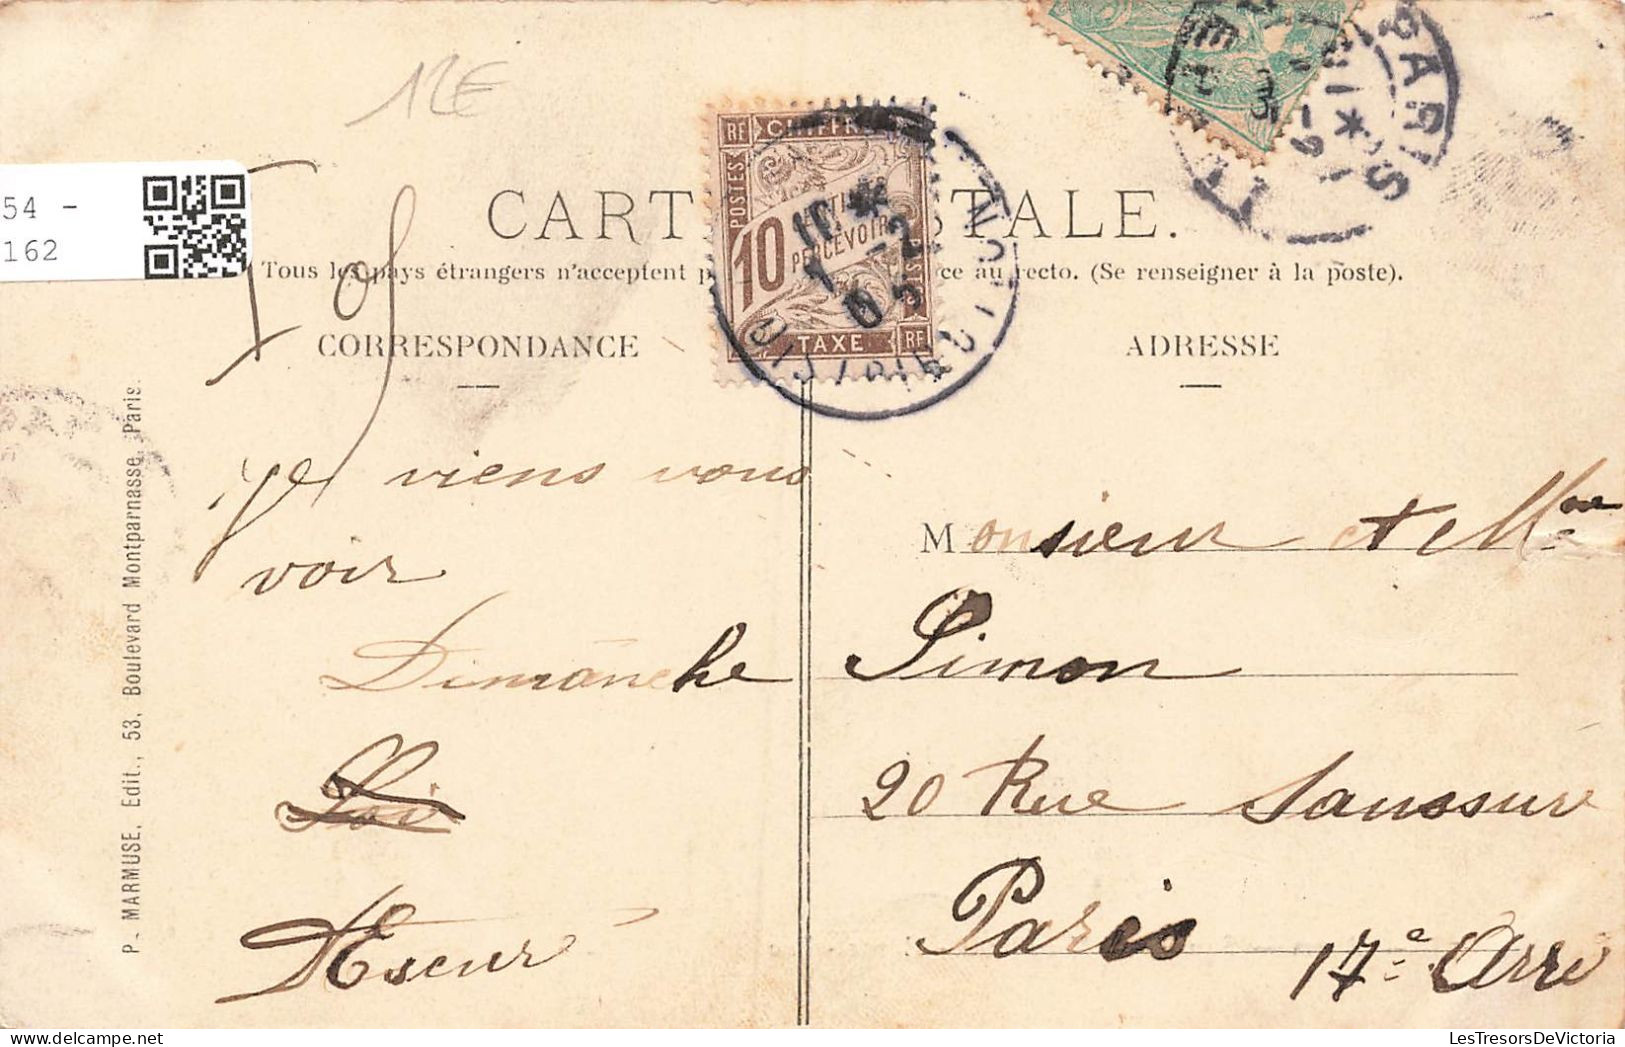 12E
54 -
162
CARTE POSTALE.
Tous les pays étrangers n'acceptent p ce au recto. (Se renseigner à la poste).
CORRESPONDANCE
ADRESSE
RF CHIFFRE
POSTES
10 CENTIMES
PERCEVOIR
TAXE RF
10 *
1 - 2
05
DISTRIBUTION
PARIS
P. MARMUSE, Edit., 53, Boulevard Montparnasse, Paris.
Je viens vous
voir
Dimanche
Monsieur et Mme
Simon
20 Rue Saussure
Paris
17e Arre
LesTresorsDeVictoria